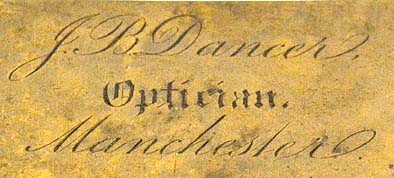 J. B. Dancer.
Optician.
Manchester.